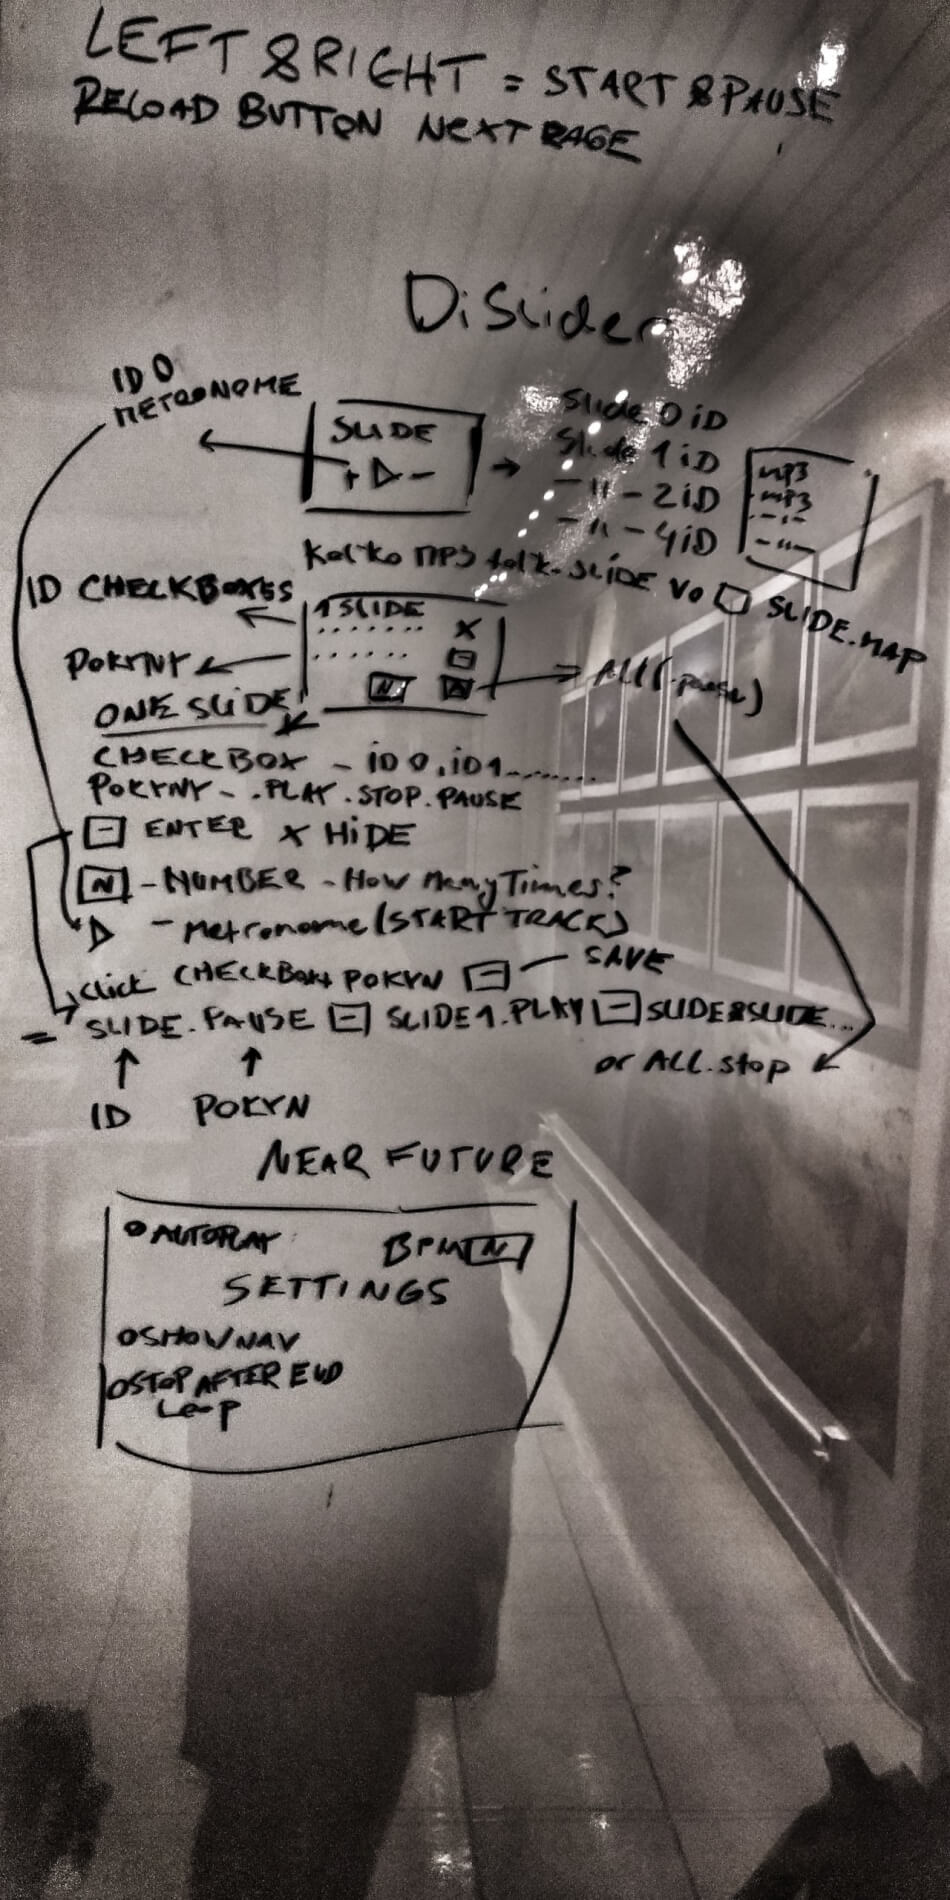 LEFT & RIGHT = START & PAUSE
RELOAD BUTTON NEXT PAGE
DiSlider
ID 0
METRONOME
SLIDE
+ ▷ -
Slide 0 iD
Slide 1 iD
-"- 2iD
-"- 4iD
mp3
mp3
-"-
-"-
Kol'ko MP3 tol'k. SLIDE Vo SLIDE.MAP
ID CHECKBOXES
1 SLIDE
X
POKYNY
N
ALL(.pause)
ONE SLIDE
CHECKBOX - iD0, iD1........
POKYNY - .PLAY .STOP .PAUSE
ENTER X HiDE
N - NUMBER - How Many Times?
▷ - Metronome (START TRACK)
click CHECKBOX POKYN - SAVE
= SLIDE.PAUSE SLIDE1.PLAY SLIDE&SLIDE...
or ALL.stop
ID POKYN
NEAR FUTURE
AUTOPLAY BPM N
SETTINGS
SHOW NAV
STOP AFTER END
Loop